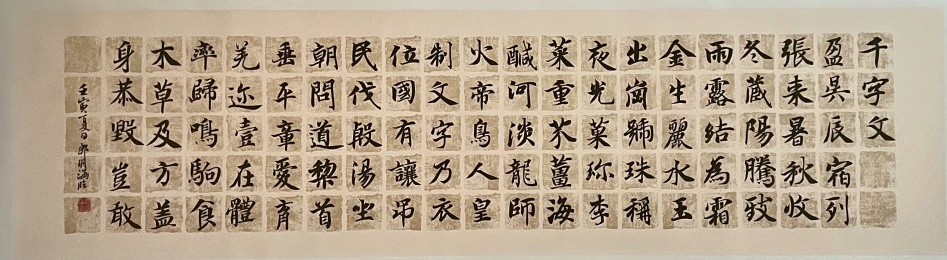 千字文
盈昃辰宿列
張来暑秋收
冬藏陽騰致
雨露結為霜
金生麗水玉
出崗號珠稱
夜光菓珍李
菜重芥薑海
鹹河淡龍師
火帝鳥人皇
制文字乃衣
位國有讓吊
民伐殷湯坐
朝問道黎首
垂平章愛育
羌迩壹在體
率歸鳴駒食
木草及方盖
身恭毀豈敢
壬寅夏日